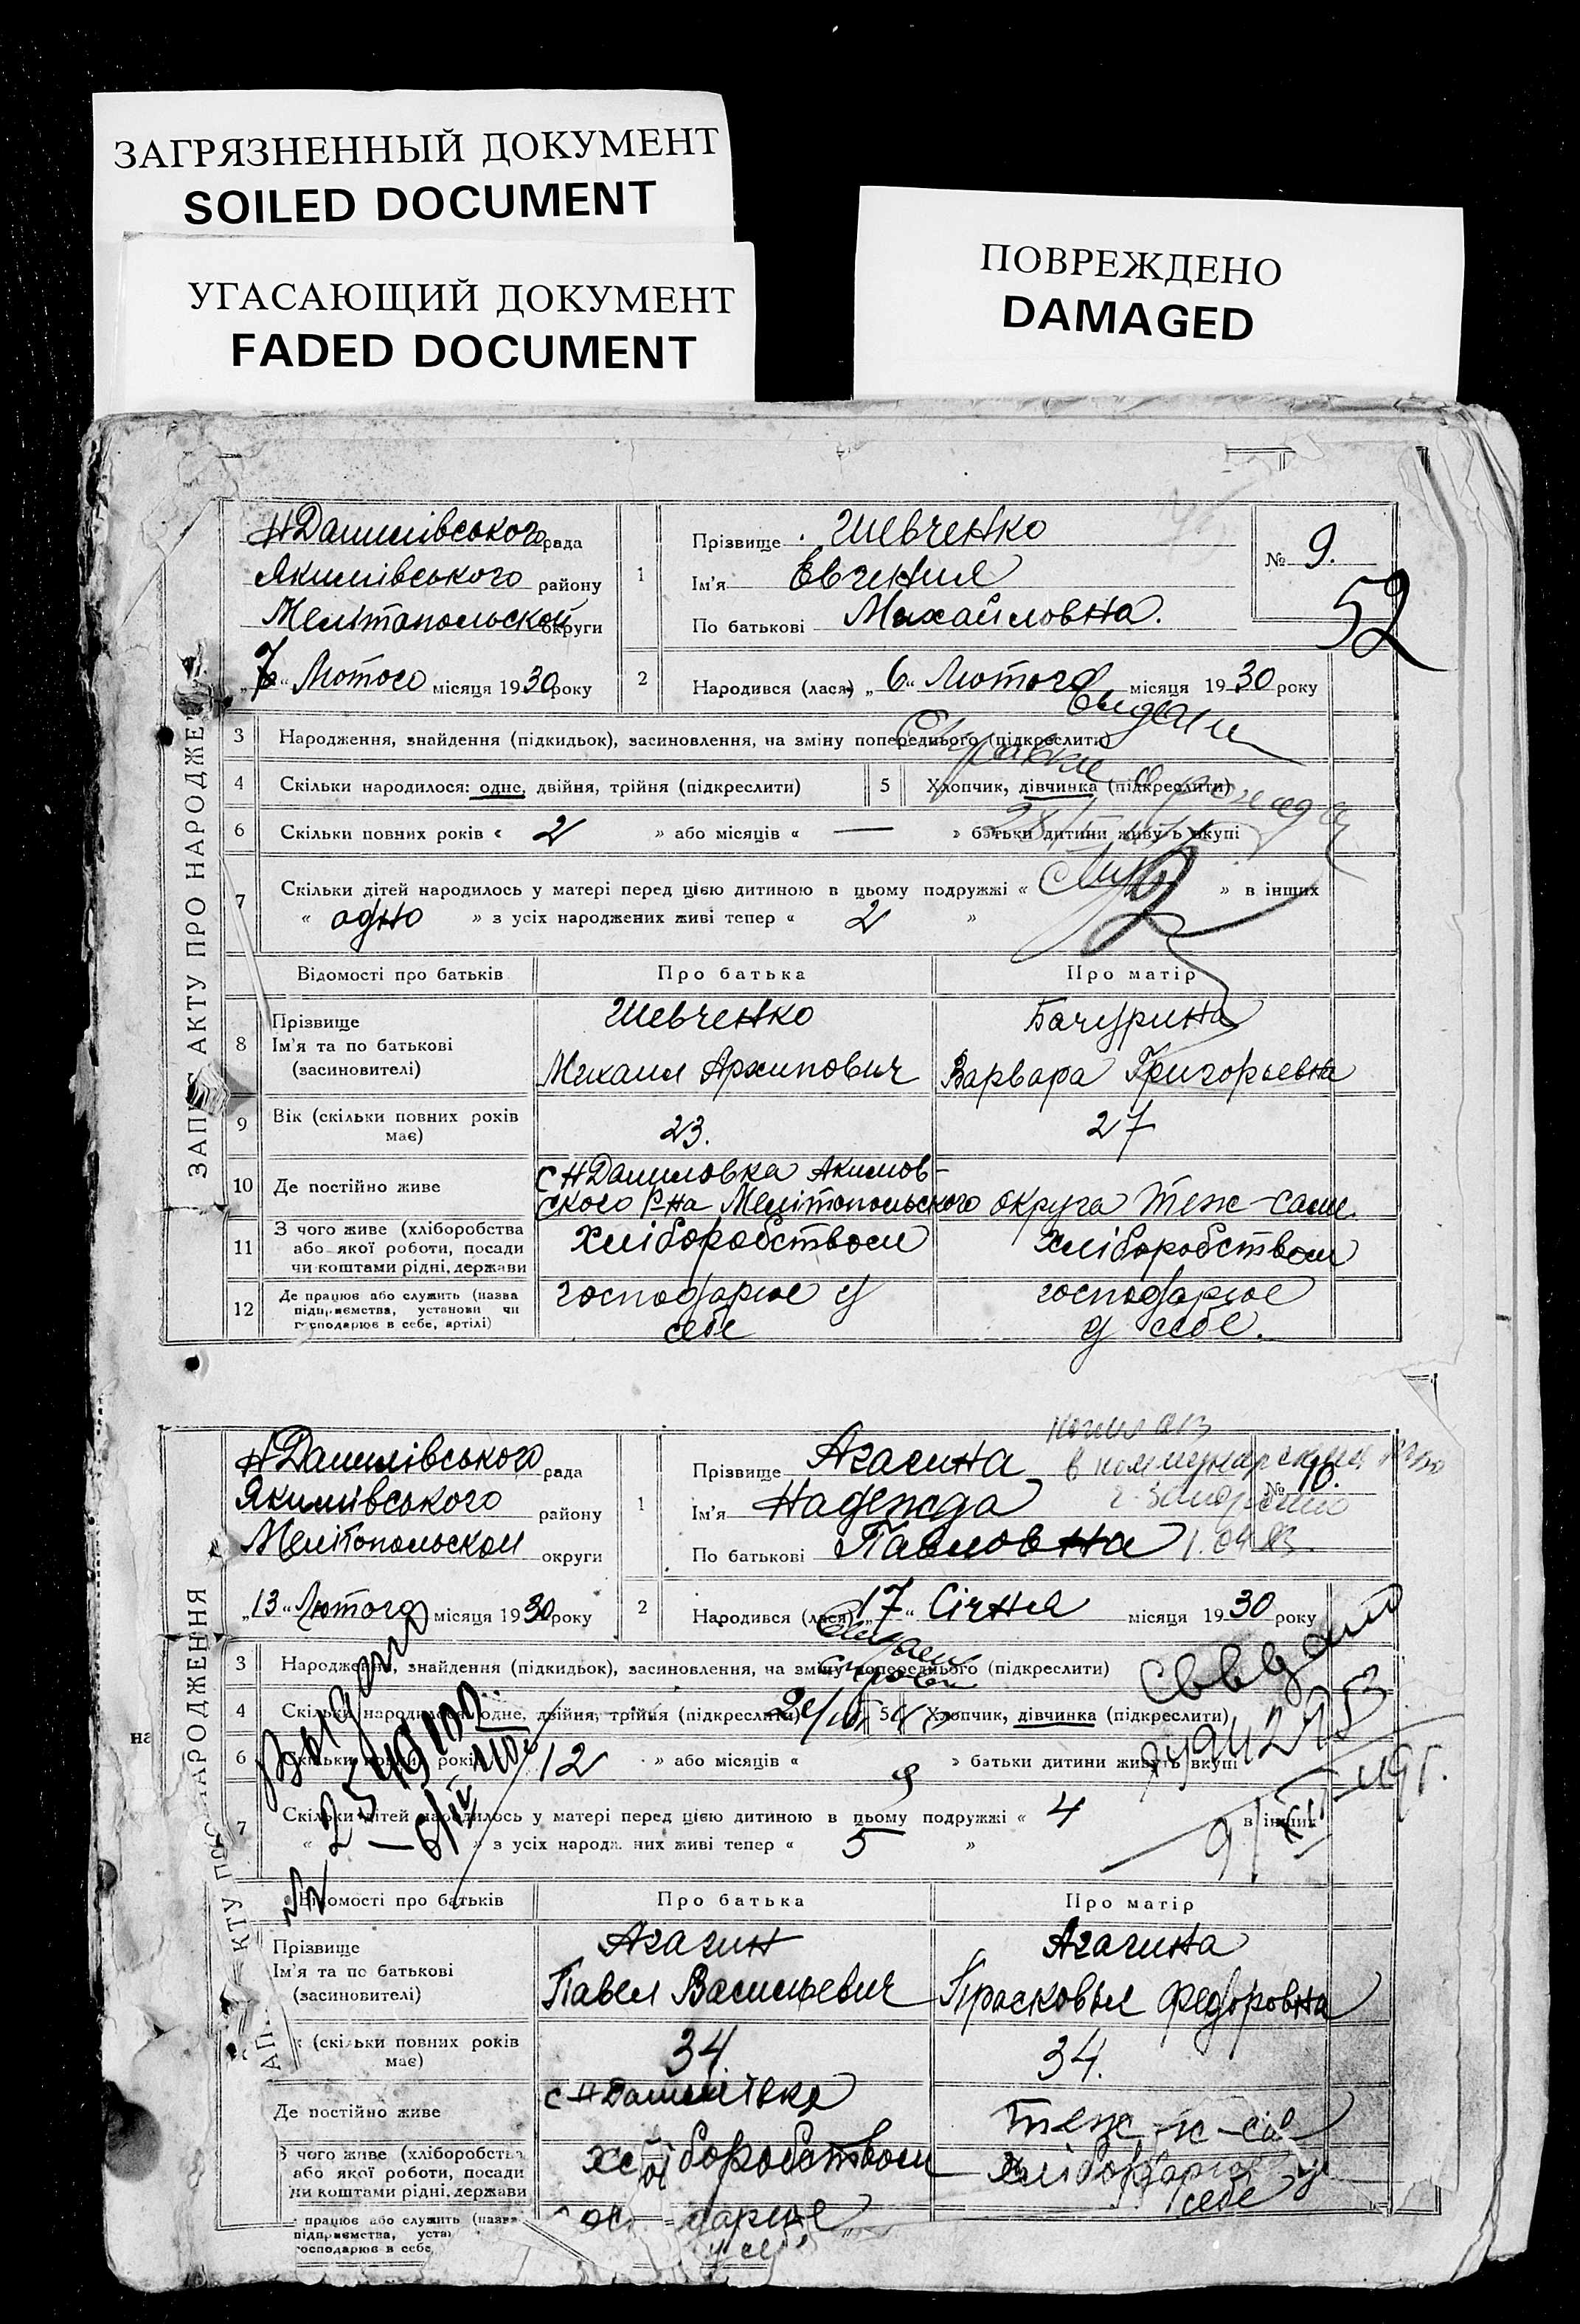 ЗАГРЯЗНЕННЫЙ ДОКУМЕНТ
SOILED DOCUMENT
УГАСАЮЩИЙ ДОКУМЕНТ
FADED DOCUMENT
ПОВРЕЖДЕНО
DAMAGED
ЗАПИС АКТУ ПРО НАРОДЖЕ
Н Данилівського рада
Якимівського району
Мелітопольской округи
„7“ Лютого місяця 1930 року
1
Прізвище Шевченко
Ім'я Евгения
По батькові Михайловна.
№ 9.
52
2
Народився (лася) „6“ Лютого місяця 1930 року
3 Народження, знайдення (підкидьок), засиновлення, на зміну попереднього (підкреслити)
4 Скільки народилося: одне, двійня, трійня (підкреслити) 5 Хлопчик, дівчинка (підкреслити)
6 Скільки повних років « 2 » або місяців « — » батьки дитини живуть вкупі
7 Скільки дітей народилось у матері перед цією дитиною в цьому подружжі « » в інших
« одно » з усіх народжених живі тепер « 2 »
Відомості про батьків Про батька Про матір
8 Прізвище
Ім'я та по батькові
(засиновителі)
Шевченко
Михаил Архипович
Бачурина
Варвара Григорьевна
9 Вік (скільки повних років
має)
23.
27
10 Де постійно живе
с Н Даниловка Акимов-
ского Р-на Мелітопольского округа теж-саме.
11 З чого живе (хліборобства
або якої роботи, посади
чи коштами рідні, держави
хліборобством
хліборобством
12 Де працює або служить (назва
підприємства, установи чи
господарює в себе, артілі)
господарює у
себе
господарює
у себе.
Н Данилівського рада
Якимівського району
Мелітопольской округи
„13“ Лютого місяця 1930 року
1
Прізвище Агагина
Ім'я Надежда
По батькові Павловна
№ 10.
2
Народився (лася) „17“ Січня місяця 1930 року
3 Народження, знайдення (підкидьок), засиновлення, на зміну попереднього (підкреслити)
4 Скільки народилося: одне, двійня, трійня (підкреслити) 5 Хлопчик, дівчинка (підкреслити)
6 Скільки повних років « 12 » або місяців « » батьки дитини живуть вкупі
7 Скільки дітей народилось у матері перед цією дитиною в цьому подружжі « 4 в інших
« » з усіх народж них живі тепер « 5 »
Відомості про батьків Про батька Про матір
Прізвище
Ім'я та по батькові
(засиновителі)
Агагин
Павел Васильевич
Агагина
Прасковья Федоровна
(скільки повних років
має)
34.
34.
Де постійно живе
с Н Данилівка
теж
З чого живе (хліборобства
або якої роботи, посади
чи коштами рідні, держави
хліборобством
працює або служить (назва
підприємства, уста
господарює в себе,
себе